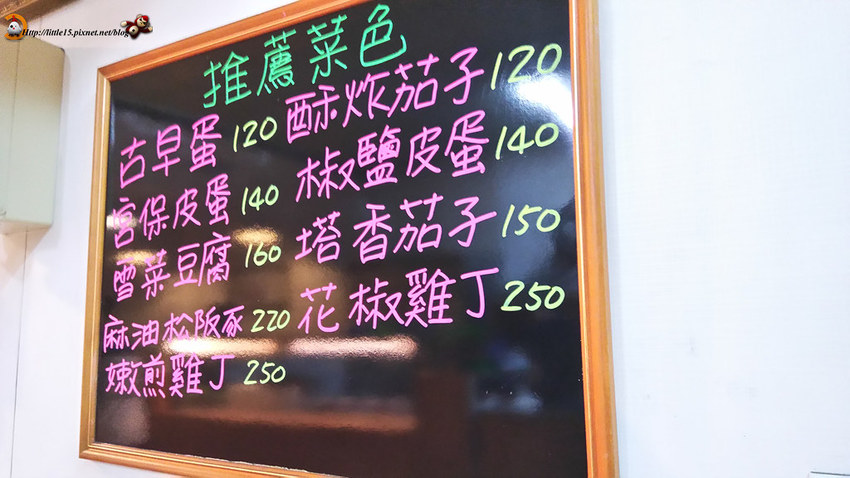 Http://little15.pixnet.net/blog
推薦菜色
古早蛋 120
酥炸茄子 120
宮保皮蛋 140
椒鹽皮蛋 140
雪菜豆腐 160
塔香茄子 150
麻油松阪豕 220
花椒雞丁 250
嫩煎雞丁 250